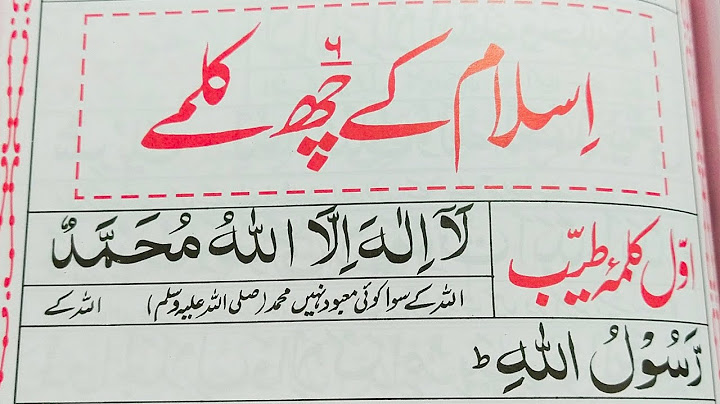 اِسلام کے چھ ۶ کلمے
اوّل کلمۂ طیّب
لَآ اِلٰهَ اِلَّا اللّٰهُ مُحَمَّدٌ
اللہ کے سوا کوئی معبود نہیں محمد (صلی اللہ علیہ وسلم) اللہ کے
رَّسُوْلُ اللّٰهِ ط